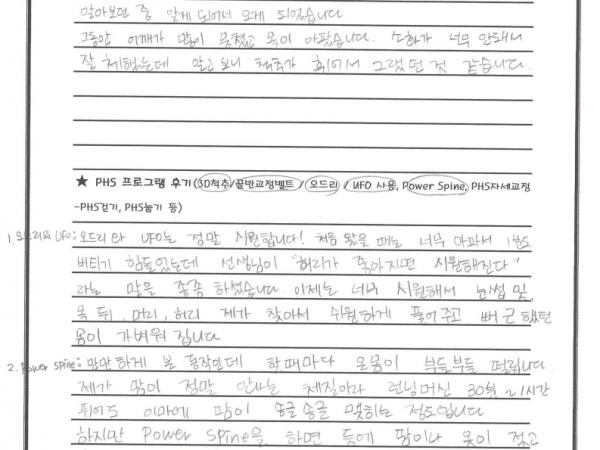 알아보던 중 알게 되어서 오게 되었습니다
그동안 어깨가 많이 뭉쳤고 목이 아팠습니다. 소화가 너무 안되서
잘 체했는데 알고보니 척추가 휘어서 그랬던 것 같습니다.
★ PHS 프로그램 후기(3D척추/골반교정벨트 / 오드리 / UFO 사용, Power Spine, PHS자세교정
-PHS걷기, PHS눕기 등)
1. 오드리와 UFO: 오드리와 UFO는 정말 시원합니다! 처음 왔을 때는 너무 아파서 1분도
버티기 힘들었는데 선생님이 "허리가 좋아지면 시원해진다"
라는 말을 종종 하셨습니다. 이제는 너무 시원해서 눈썹 밑,
목 뒤, 머리, 허리 제가 찾아서 쉬원하게 풀어주고 뻐근했던
몸이 가벼워집니다
2. Power Spine: 만만하게 본 동작인데 할때마다 온몸이 부들부들 떨립니다.
제가 땀이 정말 안나는 체질이라 런닝머신 30분, 1시간
뛰어도 이마에 땀이 송글송글 맺히는 정도입니다
하지만 Power Spine을 하면 등에 땀이나 옷이 젖고